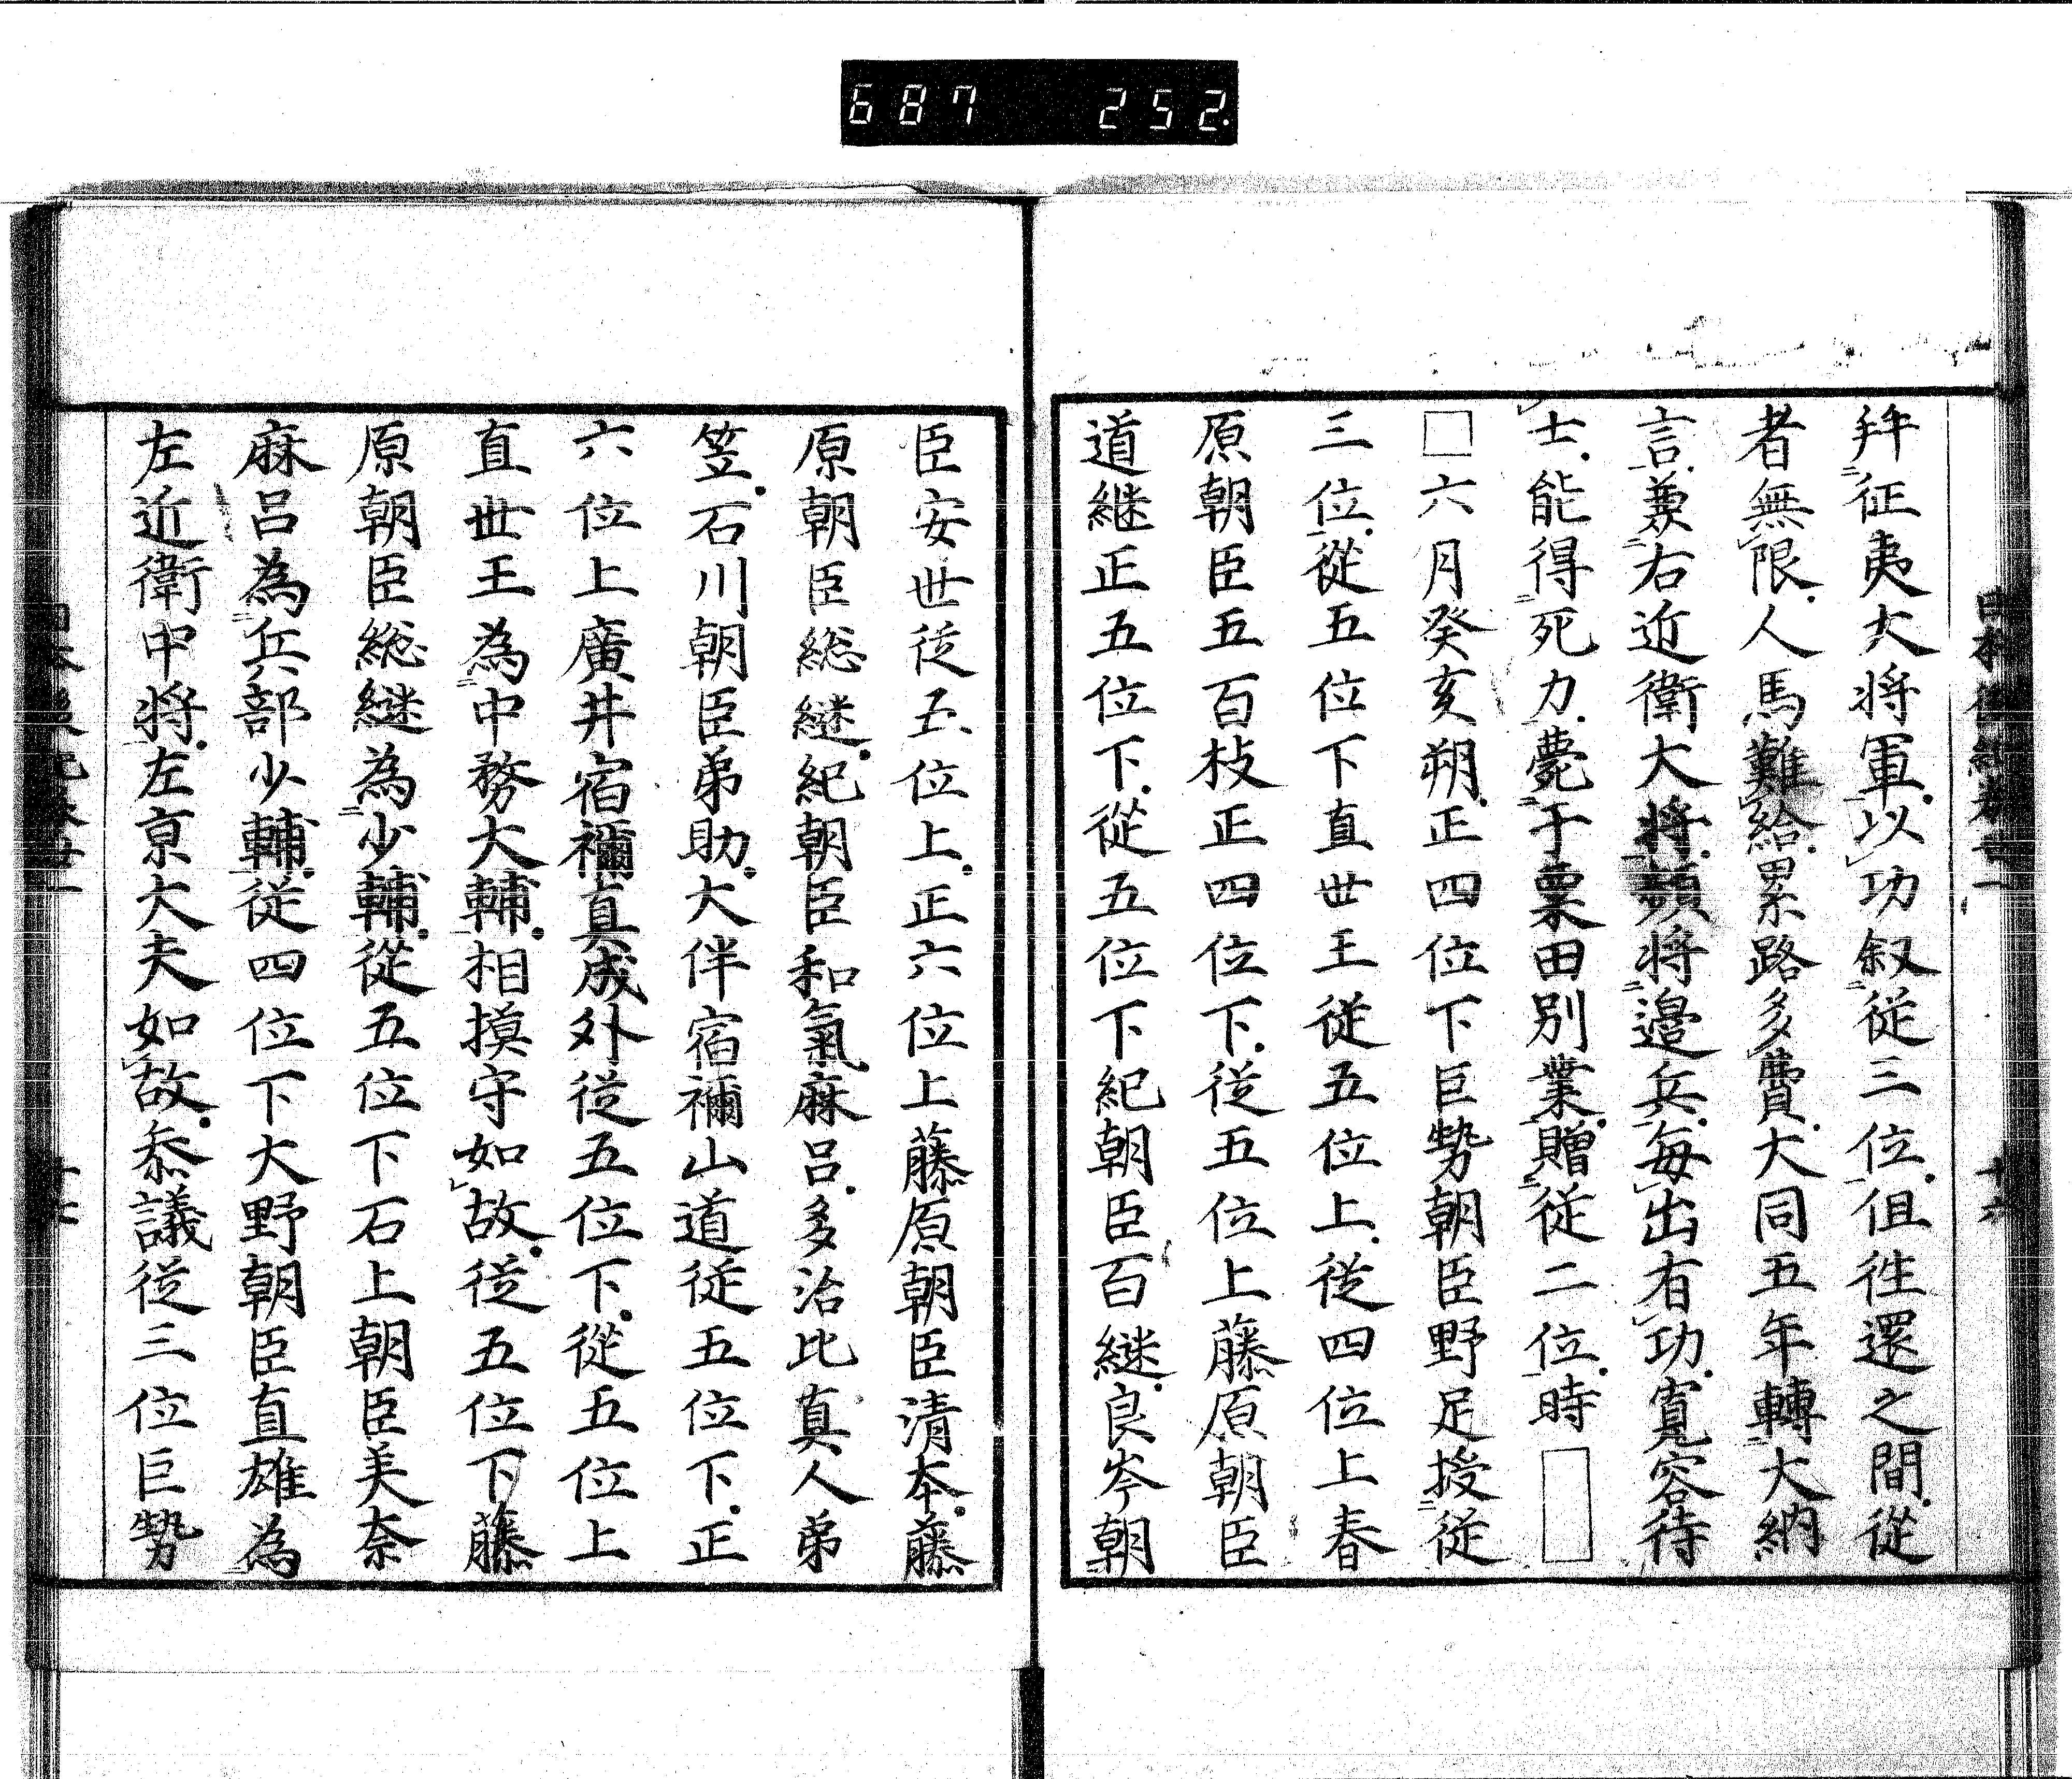 687 252
日本後紀卷廿一 十六
拜征夷大将軍以功叙従三位伹徃還之間從
者無限人馬難給累路多費大同五年轉大納
言兼右近衛大将頻将邉兵每出有功寛容待
士能得死力薨于粟田別業贈從二位時□
□六月癸亥朔正四位下巨勢朝臣野足授從
三位從五位下直世王従五位上從四位上春
原朝臣五百枝正四位下從五位上藤原朝臣
道継正五位下從五位下紀朝臣百継良岑朝
臣安世従五位上正六位上藤原朝臣清本藤
原朝臣総継紀朝臣和氣麻呂多治比真人弟
笠石川朝臣弟助大伴宿禰山道従五位下正
六位上廣井宿禰真成外從五位下從五位上
直世王為中務大輔相摸守如故從五位下藤
原朝臣総継為少輔從五位下石上朝臣美奈
麻呂為兵部少輔従四位下大野朝臣直雄為
左近衛中将左京大夫如故叅議従三位巨勢